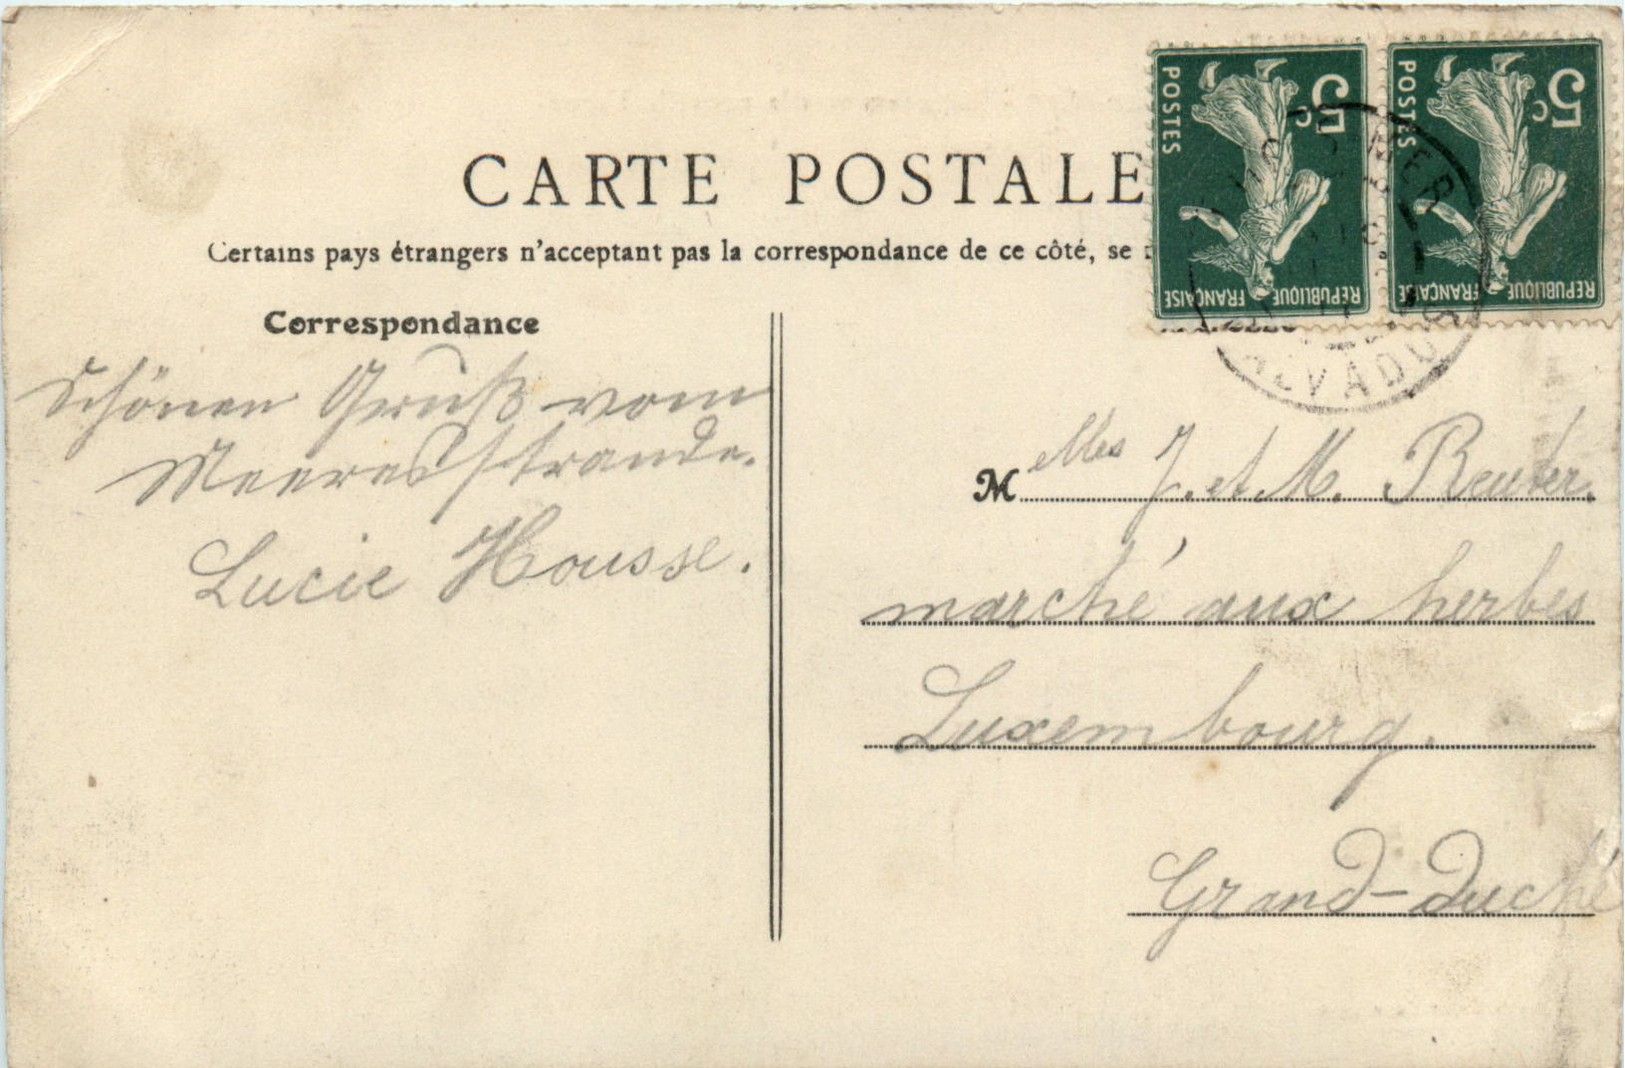 CARTE POSTALE
Certains pays étrangers n'acceptant pas la correspondance de ce côté, se
Correspondance
Schönen Gruß vom
Meeresstrande.
Lucie Housse.
5c
POSTES
RÉPUBLIQUE FRANÇAISE
5c
POSTES
RÉPUBLIQUE FRANÇAISE
CALVADOS
Melles J. et M. Reuter.
marché aux herbes
Luxembourg.
Grand-Duché